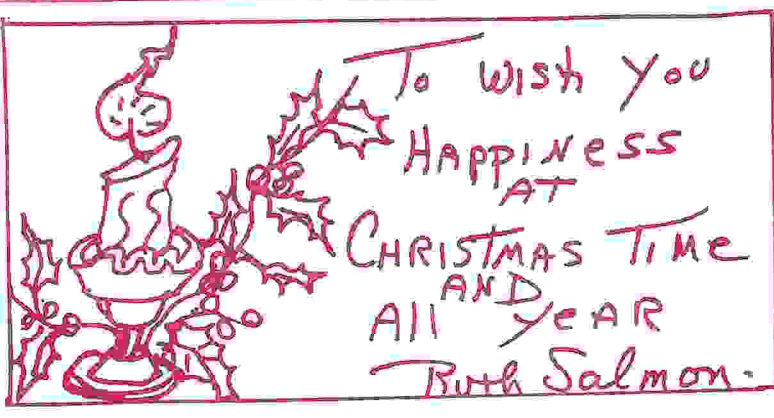 To Wish You
HAPPINeSS
AT
CHRISTMAS TIMe
AND
All YeAR
Ruth Salmon.